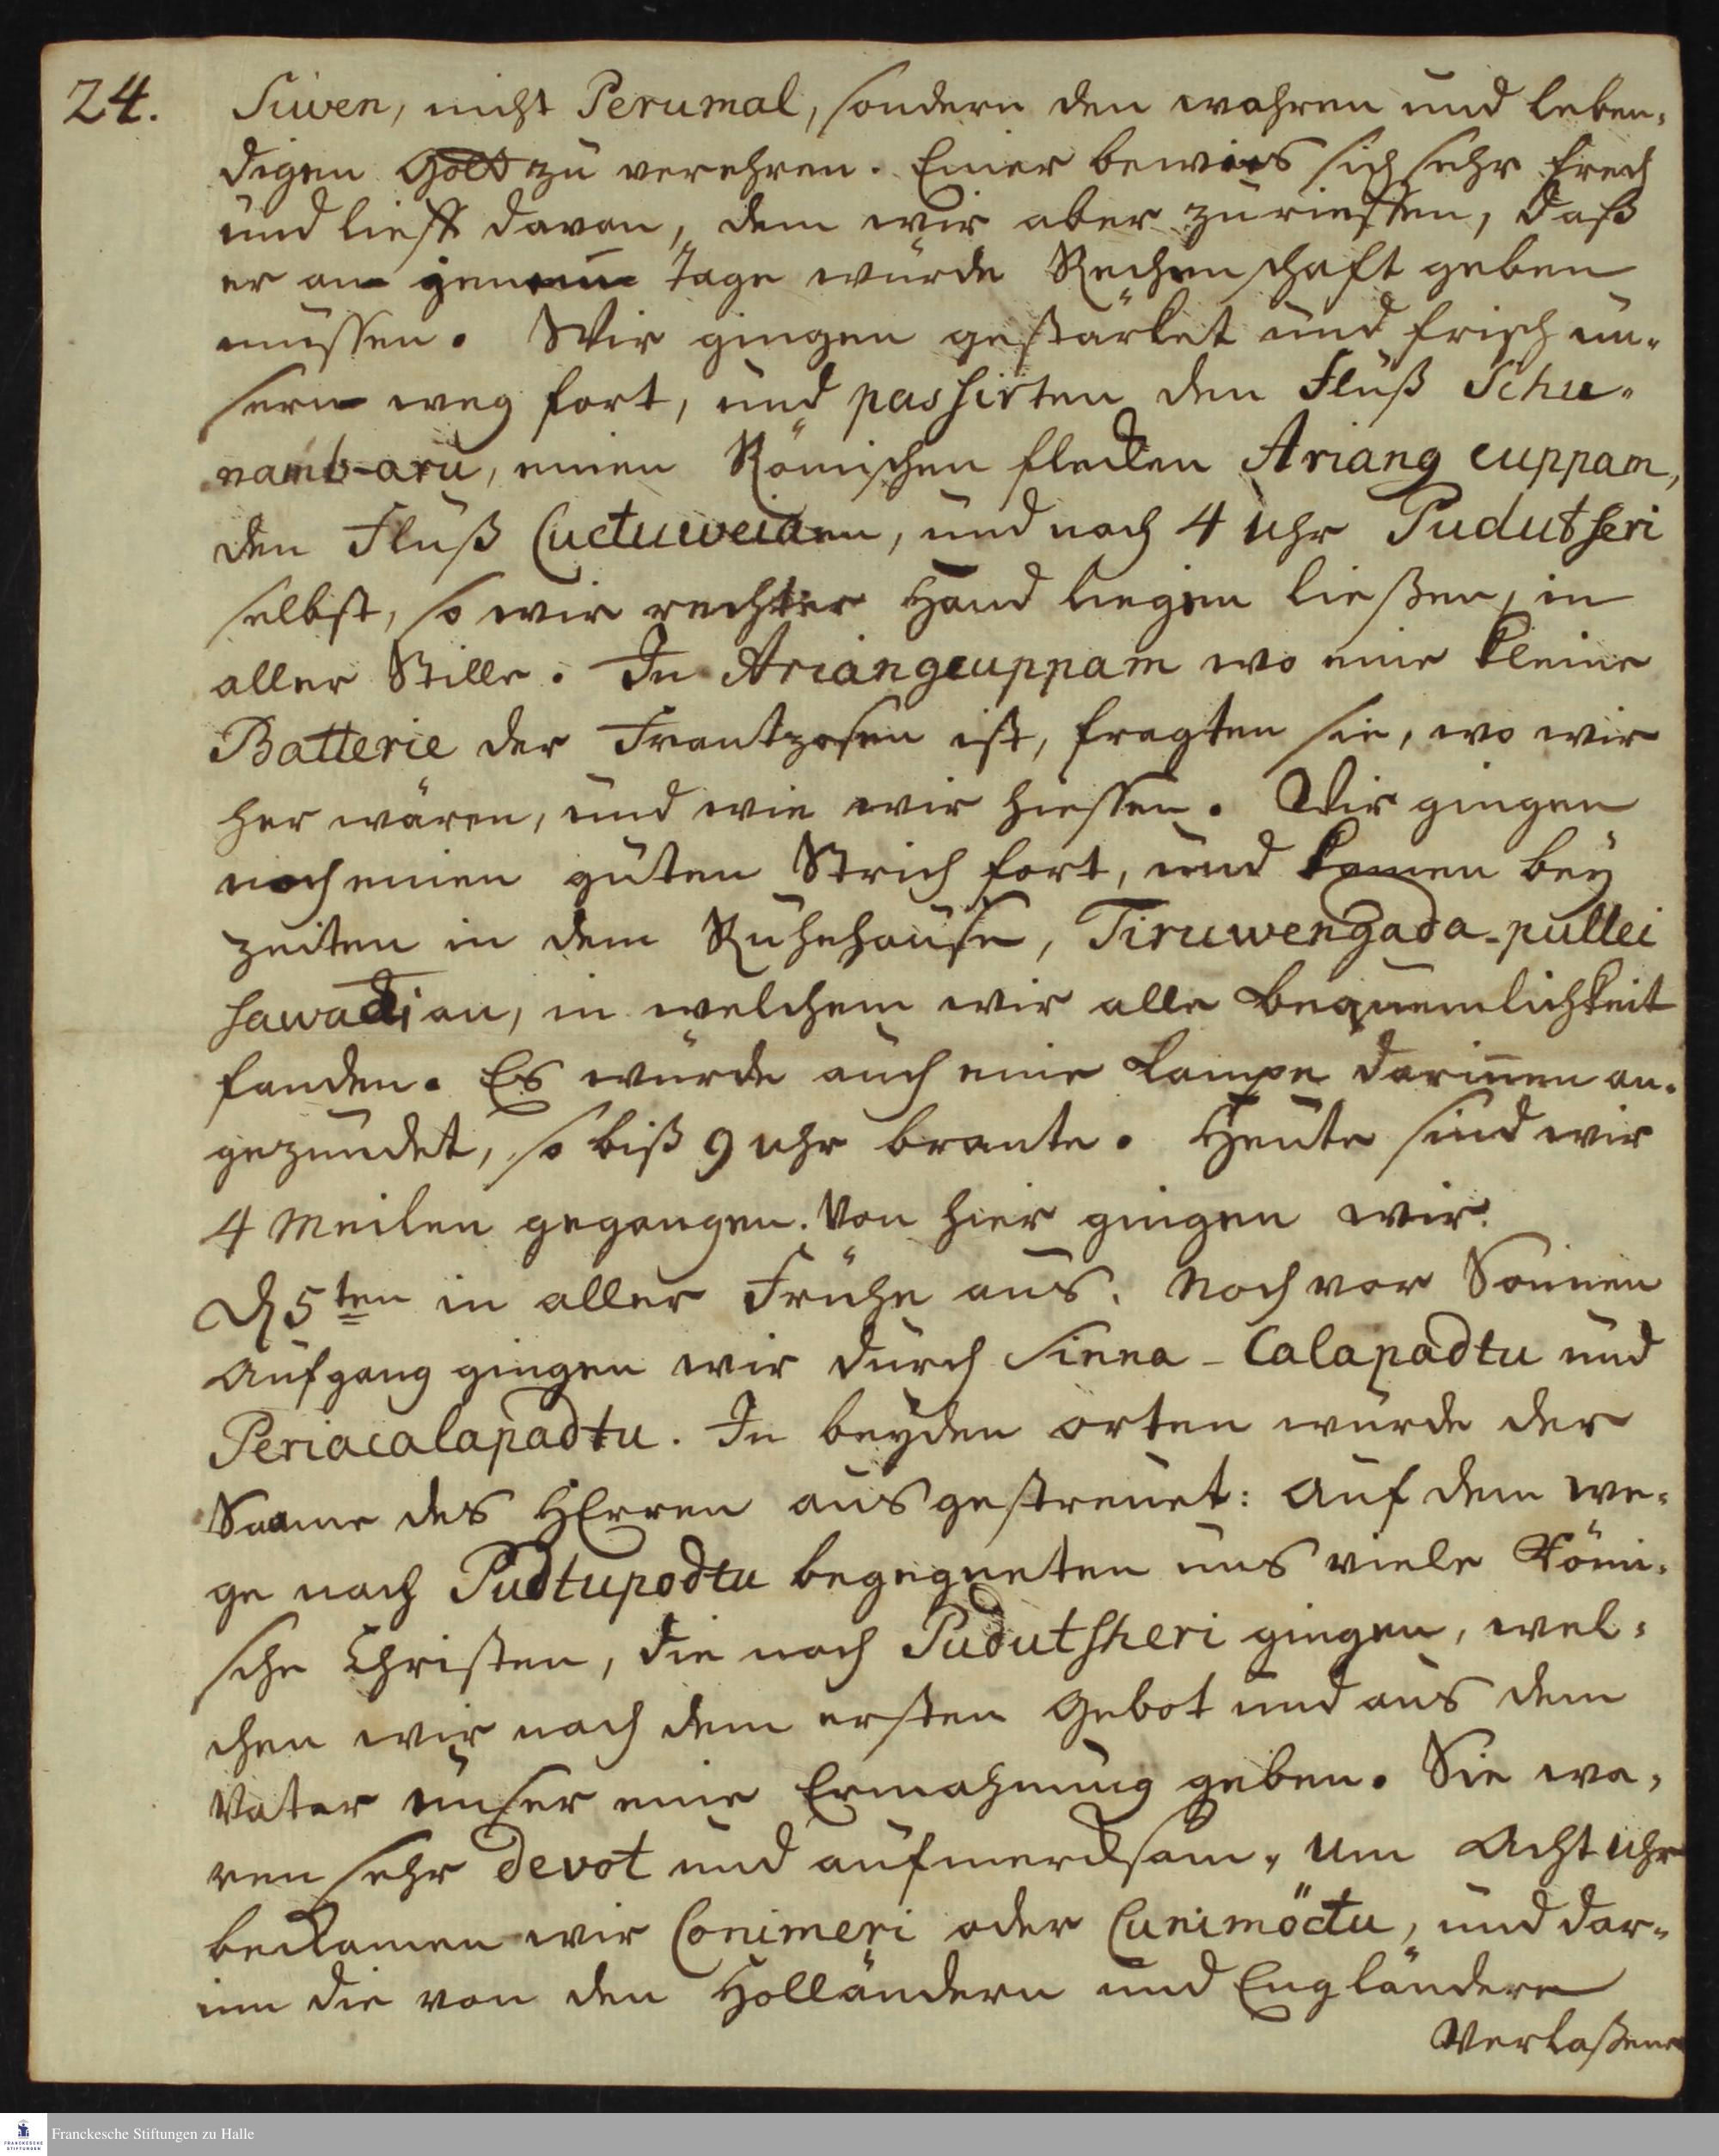 24.
Siwen, nicht Perumal, sondern den wahren und leben-
digen Gott zu verehren. Einer bewies sich sehr frech
und lieff davon, dem wir aber zurieffen, daß
er an jenem Tage würde Rechenschafft geben
müssen. Wir gingen gestärket und frisch un-
sern weg fort, und passirten den Fluß Schu-
namb-aru, einen Römischen flecken Ariang cuppam,
den Fluß Cuctuweiden, und nach 4 Uhr Pudutseri
selbst, so wir rechter Hand liegen ließen, in
aller Stille. In Ariangcuppam wo eine kleine
Batterie der Frantzosen ist, fragten sie, wo wir
her wären, und wie wir hiessen. Wir gingen
noch einen guten Strich fort, und kamen bey
zeiten in dem Ruhehause, Tiruwengada-pullei
sawadi an, in welchem wir alle Bequemlichkeit
fanden. Es wurde auch eine Lampe darinnen an-
gezündet, so biß 9 Uhr brante. Heute sind wir
4 Meilen gegangen. Von hier gingen wir
D 5ten in aller Frühe aus. Noch vor Sonnen
Aufgang gingen wir durch Sinna-Calapadtu und
Periacalapadtu. In beyden orten wurde der
Saame des HErren ausgestreuet: Auf dem we-
ge nach Pudtupodtu begegneten uns viele Römi-
sche Christen, die nach Pudutsheri gingen, wel-
chen wir nach dem ersten Gebot und aus dem
Vater unser eine Ermahnung geben. Sie wa-
ren sehr devot und aufmercksam, Um Acht Uhr
beckamen wir Conimeri oder Cunimöctu, und dar-
inn die von den Holländern und Engländern
Verlaßene
Franckesche Stiftungen zu Halle
FRANCKESCHE
STIFTUNGEN